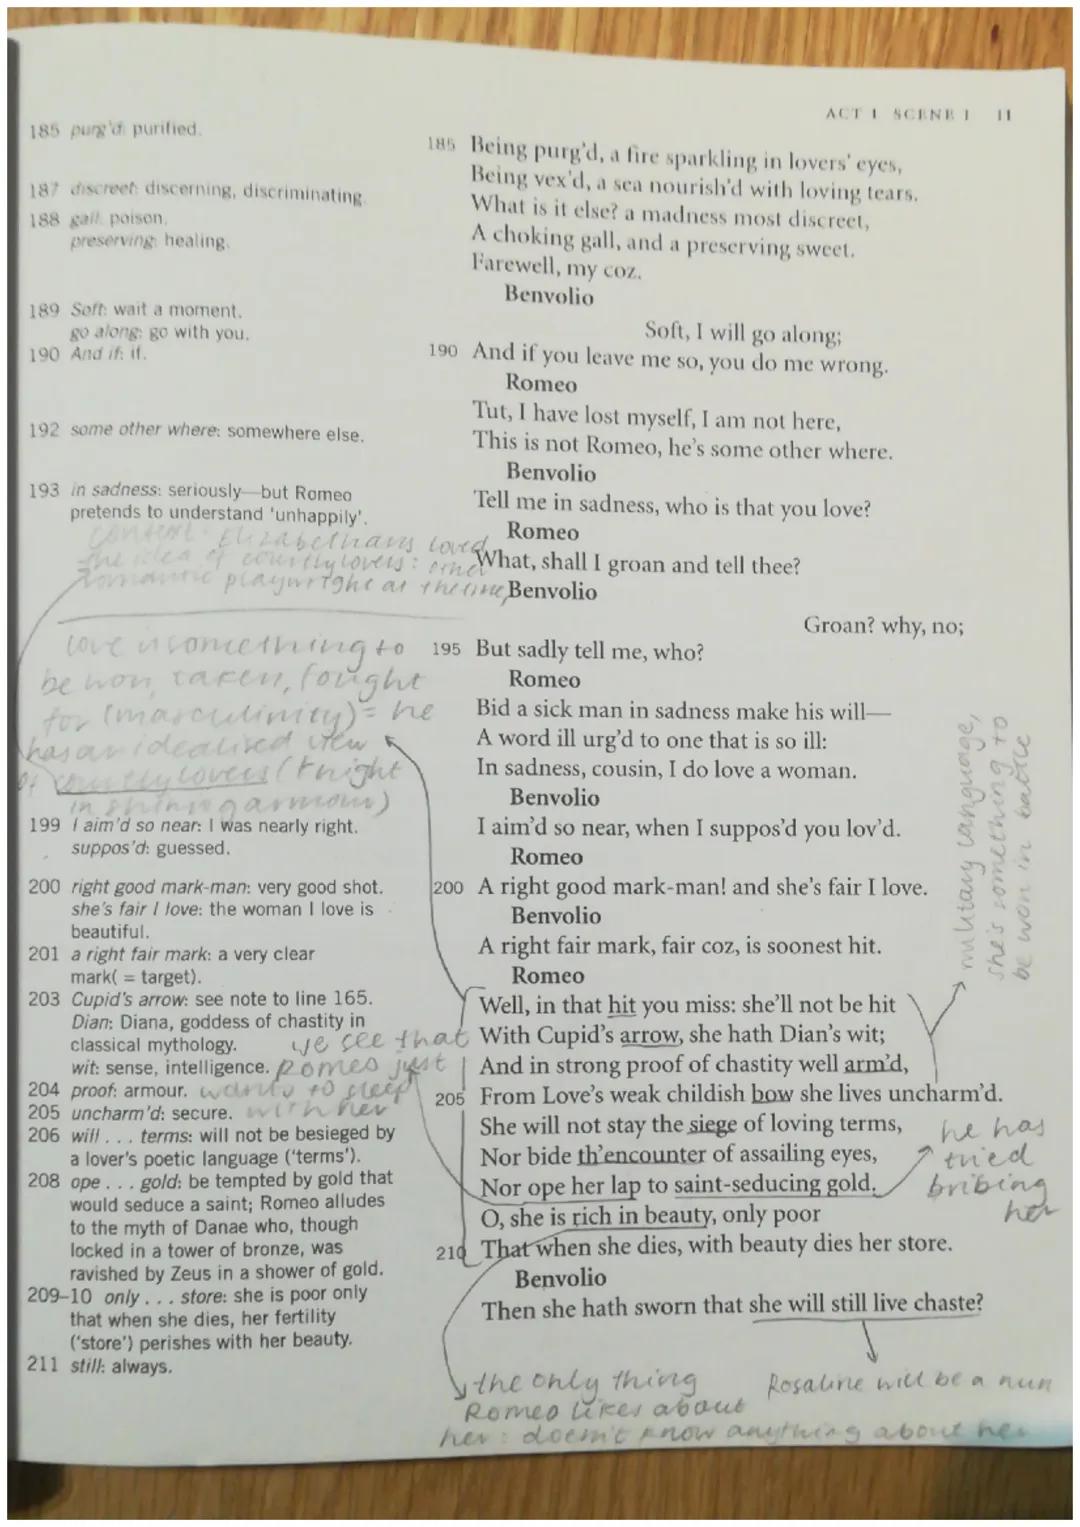 ACT 1 SCENE 1 11
185 purg'd: purified.
187 discreet: discerning, discriminating.
188 gall: poison.
preserving: healing.
189 Soft: wait a moment.
go along: go with you.
190 And if: if.
192 some other where: somewhere else.
193 in sadness: seriously—but Romeo
pretends to understand 'unhappily'.
context: Elizabethans loved
the idea of courtly lovers: other
romantic playwright at the time
love is something to
be won, taken, fought
for (masculinity) = he
has an idealised view
of courtly lovers (knight
in shining armour)
199 I aim'd so near: I was nearly right.
suppos'd: guessed.
200 right good mark-man: very good shot.
she's fair I love: the woman I love is
beautiful.
201 a right fair mark: a very clear
mark( = target).
203 Cupid's arrow: see note to line 165.
Dian: Diana, goddess of chastity in
classical mythology.
wit: sense, intelligence.
we see that
Romeo just
wants to sleep
with her
204 proof: armour.
205 uncharm'd: secure.
206 will . . . terms: will not be besieged by
a lover's poetic language ('terms').
208 ope . . . gold: be tempted by gold that
would seduce a saint; Romeo alludes
to the myth of Danae who, though
locked in a tower of bronze, was
ravished by Zeus in a shower of gold.
209–10 only . . . store: she is poor only
that when she dies, her fertility
('store') perishes with her beauty.
211 still: always.
185 Being purg'd, a fire sparkling in lovers' eyes,
Being vex'd, a sea nourish'd with loving tears.
What is it else? a madness most discreet,
A choking gall, and a preserving sweet.
Farewell, my coz.
Benvolio
Soft, I will go along;
190 And if you leave me so, you do me wrong.
Romeo
Tut, I have lost myself, I am not here,
This is not Romeo, he's some other where.
Benvolio
Tell me in sadness, who is that you love?
Romeo
What, shall I groan and tell thee?
Benvolio
Groan? why, no;
195 But sadly tell me, who?
Romeo
Bid a sick man in sadness make his will—
A word ill urg'd to one that is so ill:
In sadness, cousin, I do love a woman.
Benvolio
I aim'd so near, when I suppos'd you lov'd.
Romeo
200 A right good mark-man! and she's fair I love.
Benvolio
A right fair mark, fair coz, is soonest hit.
Romeo
Well, in that hit you miss: she'll not be hit
With Cupid's arrow, she hath Dian's wit;
And in strong proof of chastity well arm'd,
205 From Love's weak childish bow she lives uncharm'd.
She will not stay the siege of loving terms,
Nor bide th'encounter of assailing eyes,
Nor ope her lap to saint-seducing gold.
O, she is rich in beauty, only poor
210 That when she dies, with beauty dies her store.
Benvolio
Then she hath sworn that she will still live chaste?
military language,
she's something to
be won in battle
he has
tried
bribing
her
the only thing
Romeo likes about
her: doesn't know anything about her
Rosaline will be a nun